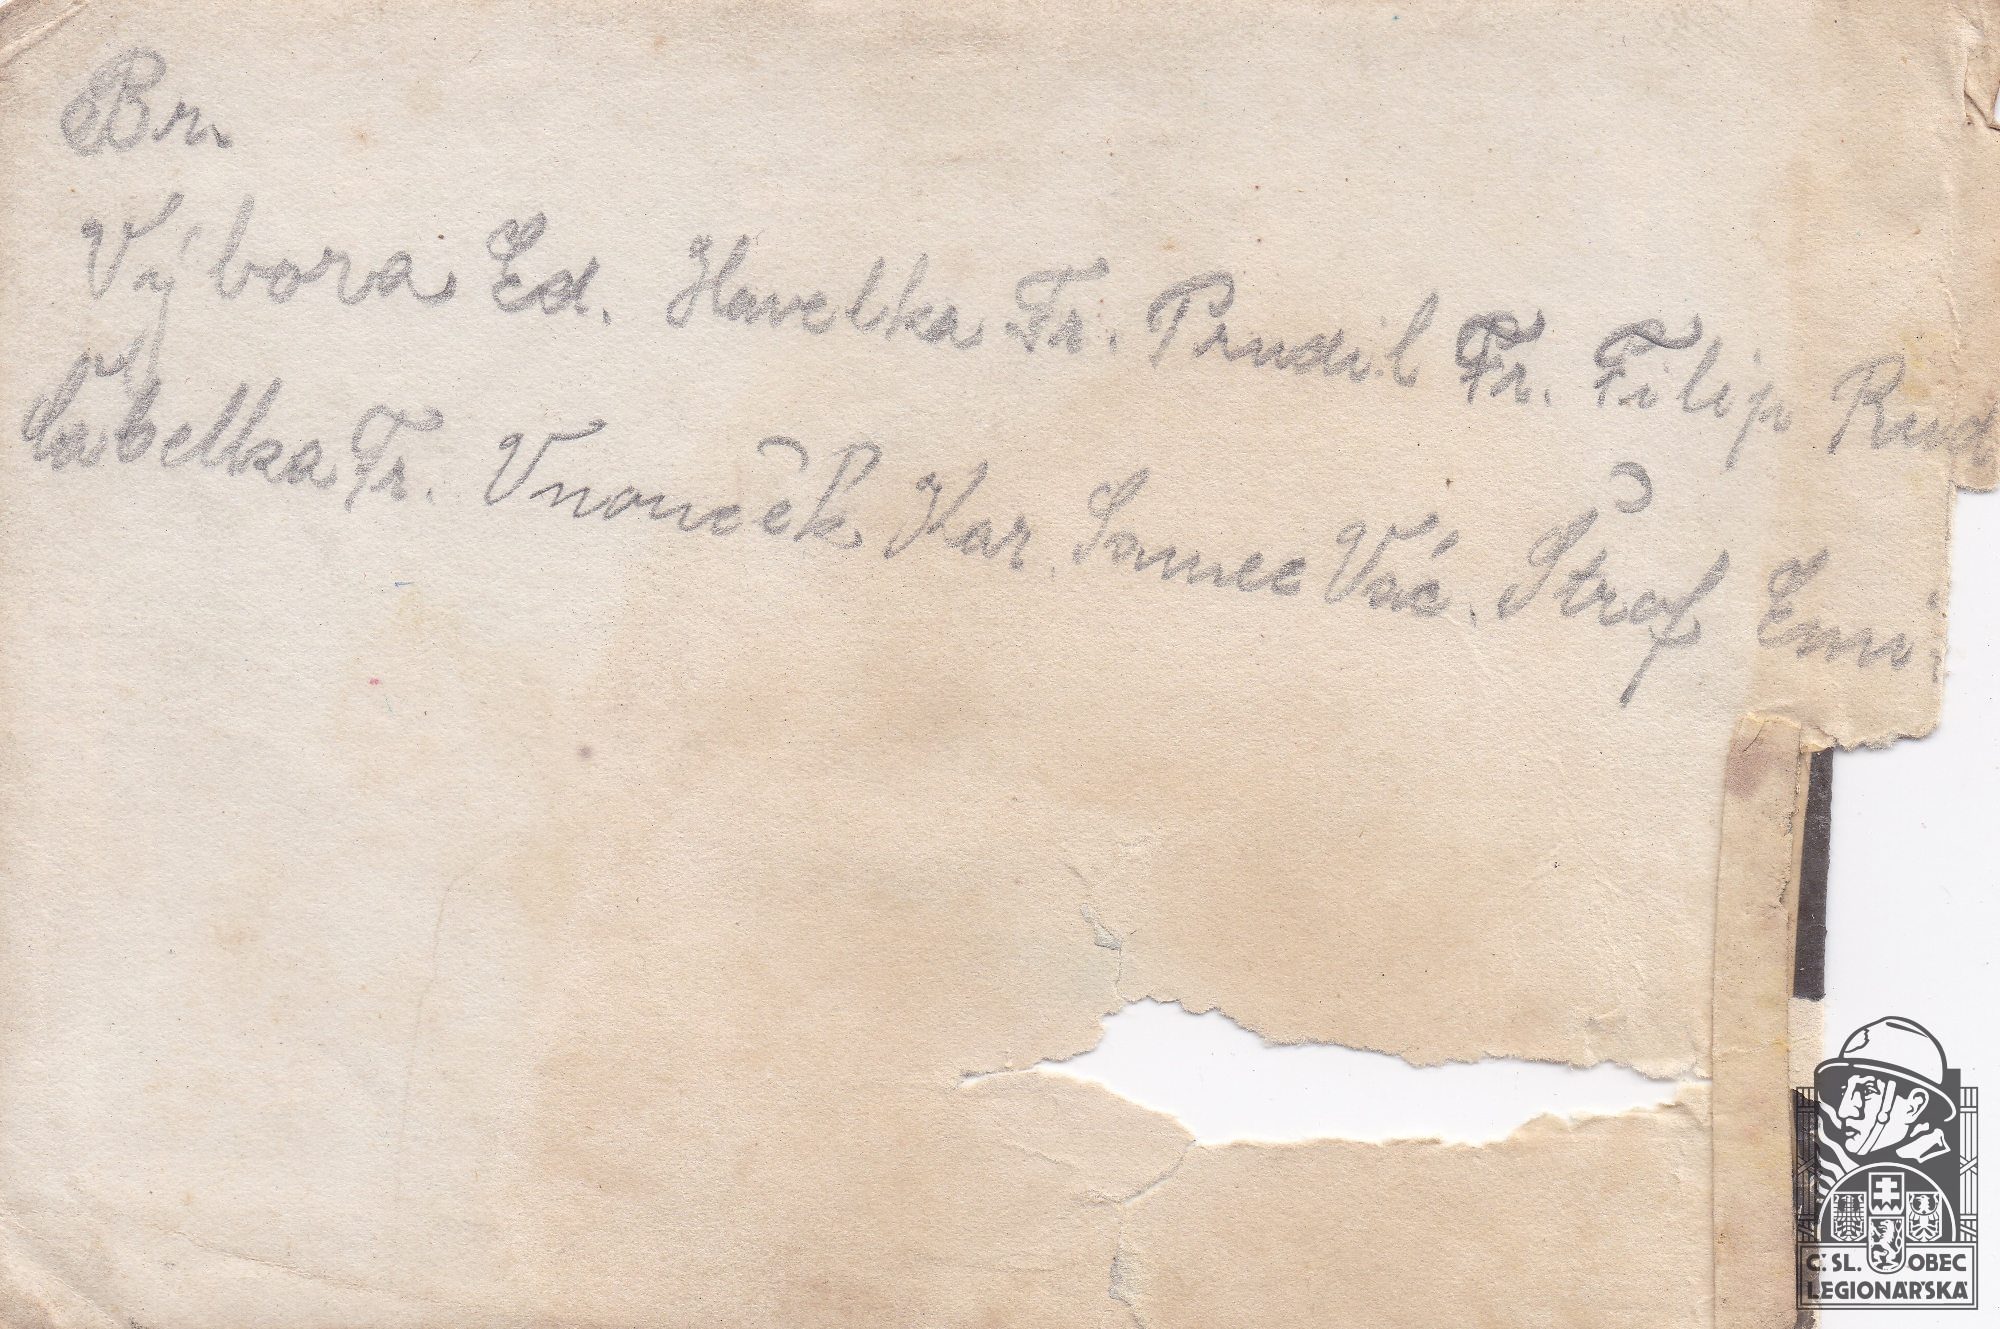 Br.
Výbora Ed. Havelka Fr. Prudil Fr. Filip Rud
Sabelka Fr. Vnouček Kar. Samec Vác. Štrof Emi
Č. SL. OBEC
LEGIONÁŘSKÁ